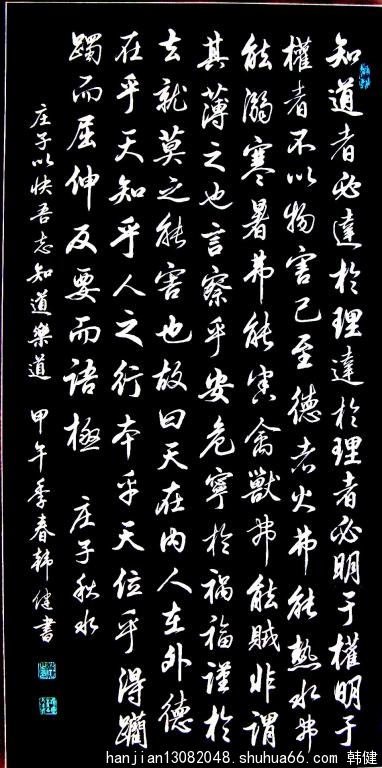 知道者必達於理達於理者必明于權明于
權者不以物害己至德者火弗能熱水弗
能溺寒暑弗能害禽獸弗能賊非謂
其薄之也言察乎安危寧於禍福謹於
去就莫之能害也故曰天在內人在外德
在乎天知乎人之行本乎天位乎得蹢
躅而屈伸反要而語極 庄子秋水
庄子以快吾志知道樂道 甲午季春韓健書
hanjian13082048.shuhua66.com 韩健